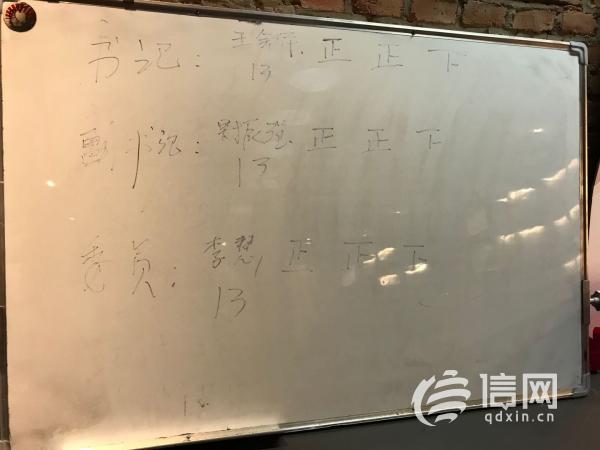 书记：王 正 正 下
13
副书记：刘振强 正 正 下
13
委员：李慧 正 正 下
13
信网
qdxin.cn